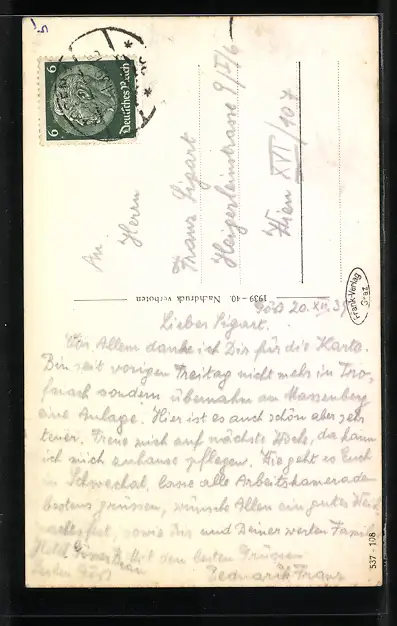 6
6
Deutsches Reich
An Herrn
Franz Sigart
Heigerleinstrasse 9/II/6
Wien XVI/107
1939 - 40. Nachdruck verboten
Frank-Verlag Graz
20. XII. 39
Lieber Sigart.
Vor Allem danke ich Dir für die Karte.
Bin seit vorigen Freitag nicht mehr in Tro-
faiach sondern übernahm am Massenberg
eine Anlage. Hier ist es auch schön aber sehr
teuer. Freue mich auf nächste Woche, da kann
ich mich zuhause pflegen. Wie geht es Euch
in Schwechat, lasse alle Arbeitskameraden
bestens grüssen, wünsche Allen ein gutes Weih-
nachtsfest, sowie Dir und Deiner werten Familie
Hotel
Mit den besten Grüssen
Franz
537 - 108